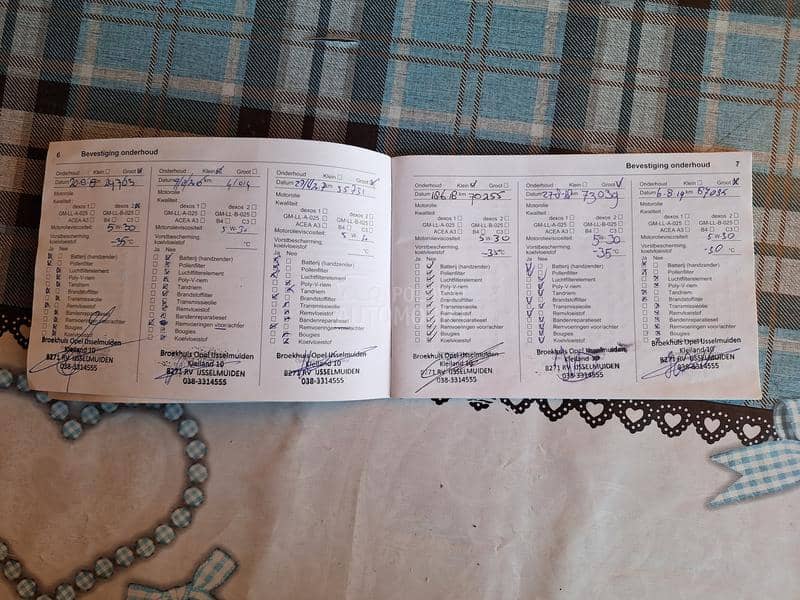 6 Bevestiging onderhoud
Onderhoud Klein Groot
Datum km
Motorolie
Kwaliteit
dexos 1 dexos 2
GM-LL-A-025 GM-LL-B-025
ACEA A3 B4 C3
Motorolieviscositeit 5 w 30
Vorstbescherming,
koelvloeistof -35°C
Ja Nee
Batterij (handzender)
Pollenfilter
Luchtfilterelement
Poly-V-riem
Tandriem
Brandstoffilter
Transmissieolie
Remvloeistof
Bandenreparatieset
Remvoeringen voor/achter
Bougies
Koelvloeistof
Broekhuis Opel IJsselmuiden
Kleiland 10
8271 RV IJSSELMUIDEN
038-3314555
Onderhoud Klein Groot
Datum km
Motorolie
Kwaliteit
dexos 1 dexos 2
GM-LL-A-025 GM-LL-B-025
ACEA A3 B4 C3
Motorolieviscositeit 5 w 30
Vorstbescherming,
koelvloeistof °C
Ja Nee
Batterij (handzender)
Pollenfilter
Luchtfilterelement
Poly-V-riem
Tandriem
Brandstoffilter
Transmissieolie
Remvloeistof
Bandenreparatieset
Remvoeringen voor/achter
Bougies
Koelvloeistof
Broekhuis Opel IJsselmuiden
Kleiland 10
8271 RV IJSSELMUIDEN
038-3314555
Onderhoud Klein Groot
Datum km 55731
Motorolie
Kwaliteit
dexos 1 dexos 2
GM-LL-A-025 GM-LL-B-025
ACEA A3 B4 C3
Motorolieviscositeit 5 w 30
Vorstbescherming,
koelvloeistof °C
Ja Nee
Batterij (handzender)
Pollenfilter
Luchtfilterelement
Poly-V-riem
Tandriem
Brandstoffilter
Transmissieolie
Remvloeistof
Bandenreparatieset
Remvoeringen voor/achter
Bougies
Koelvloeistof
Broekhuis Opel IJsselmuiden
Kleiland 10
8271 RV IJSSELMUIDEN
038-3314555
Bevestiging onderhoud 7
Onderhoud Klein Groot
Datum km 70255
Motorolie
Kwaliteit
dexos 1 dexos 2
GM-LL-A-025 GM-LL-B-025
ACEA A3 B4 C3
Motorolieviscositeit 5w30
Vorstbescherming,
koelvloeistof -35°C
Ja Nee
Batterij (handzender)
Pollenfilter
Luchtfilterelement
Poly-V-riem
Tandriem
Brandstoffilter
Transmissieolie
Remvloeistof
Bandenreparatieset
Remvoeringen voor/achter
Bougies
Koelvloeistof
Broekhuis Opel IJsselmuiden
Kleiland 10
8271 RV IJSSELMUIDEN
038-3314555
Onderhoud Klein Groot
Datum km 73039
Motorolie
Kwaliteit
dexos 1 dexos 2
GM-LL-A-025 GM-LL-B-025
ACEA A3 B4 C3
Motorolieviscositeit 5w30
Vorstbescherming,
koelvloeistof -35°C
Ja Nee
Batterij (handzender)
Pollenfilter
Luchtfilterelement
Poly-V-riem
Tandriem
Brandstoffilter
Transmissieolie
Remvloeistof
Bandenreparatieset
Remvoeringen voor/achter
Bougies
Koelvloeistof
Broekhuis Opel IJsselmuiden
Kleiland 10
8271 RV IJSSELMUIDEN
038-3314555
Onderhoud Klein Groot
Datum km
Motorolie
Kwaliteit
dexos 1 dexos 2
GM-LL-A-025 GM-LL-B-025
ACEA A3 B4 C3
Motorolieviscositeit 5w30
Vorstbescherming,
koelvloeistof -30 °C
Ja Nee
Batterij (handzender)
Pollenfilter
Luchtfilterelement
Poly-V-riem
Tandriem
Brandstoffilter
Transmissieolie
Remvloeistof
Bandenreparatieset
Remvoeringen voor/achter
Bougies
Koelvloeistof
Broekhuis Opel IJsselmuiden
Kleiland 10
8271 RV IJSSELMUIDEN
038-3314555